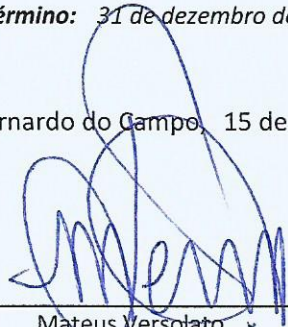 érmino: 31 de dezembro de
rnardo do Campo, 15 de
Mateus Versolato